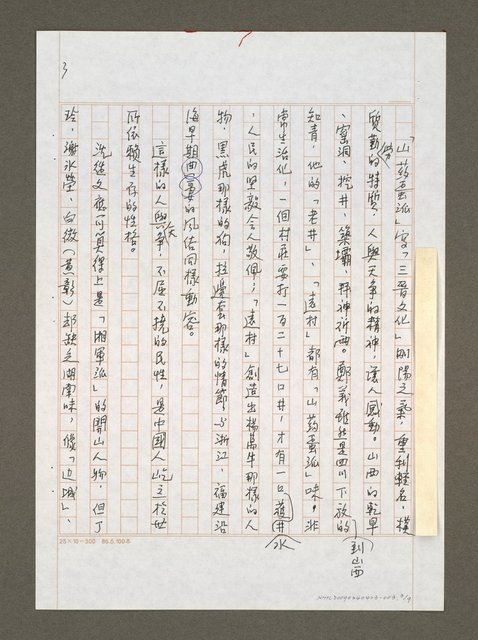 3
「山药蛋派」写「三晋文化」刚陽之氣，重利輕名，樸
質勤勞的特質，人與天爭的精神，讓人感動。山西的乾旱
、窰洞、挖井、築壩、拜神祈雨。鄭義雖然是四川下放的到山西
知青，他的「老井」、「遠村」都有「山药蛋派」味。非
常生活化，一個村莊要打一百二十七口井，才有一口井水
、人民的堅毅令人敬佩；「遠村」創造出楊萬牛那樣的人
物，黑虎那樣的狗，拉邊套那樣的情節，与浙江、福建沿
海早期典妻的風俗同樣動容。
這樣的人與天爭，不屈不撓的民性，是中國人屹立於世
所依賴生存的性格。
沈從文應可算得上是「湘軍派」的開山人物，但丁
玲、謝冰瑩、白薇（黃彰）却缺乏湖南味，像「边城」、
25×10=300 86.5.100本